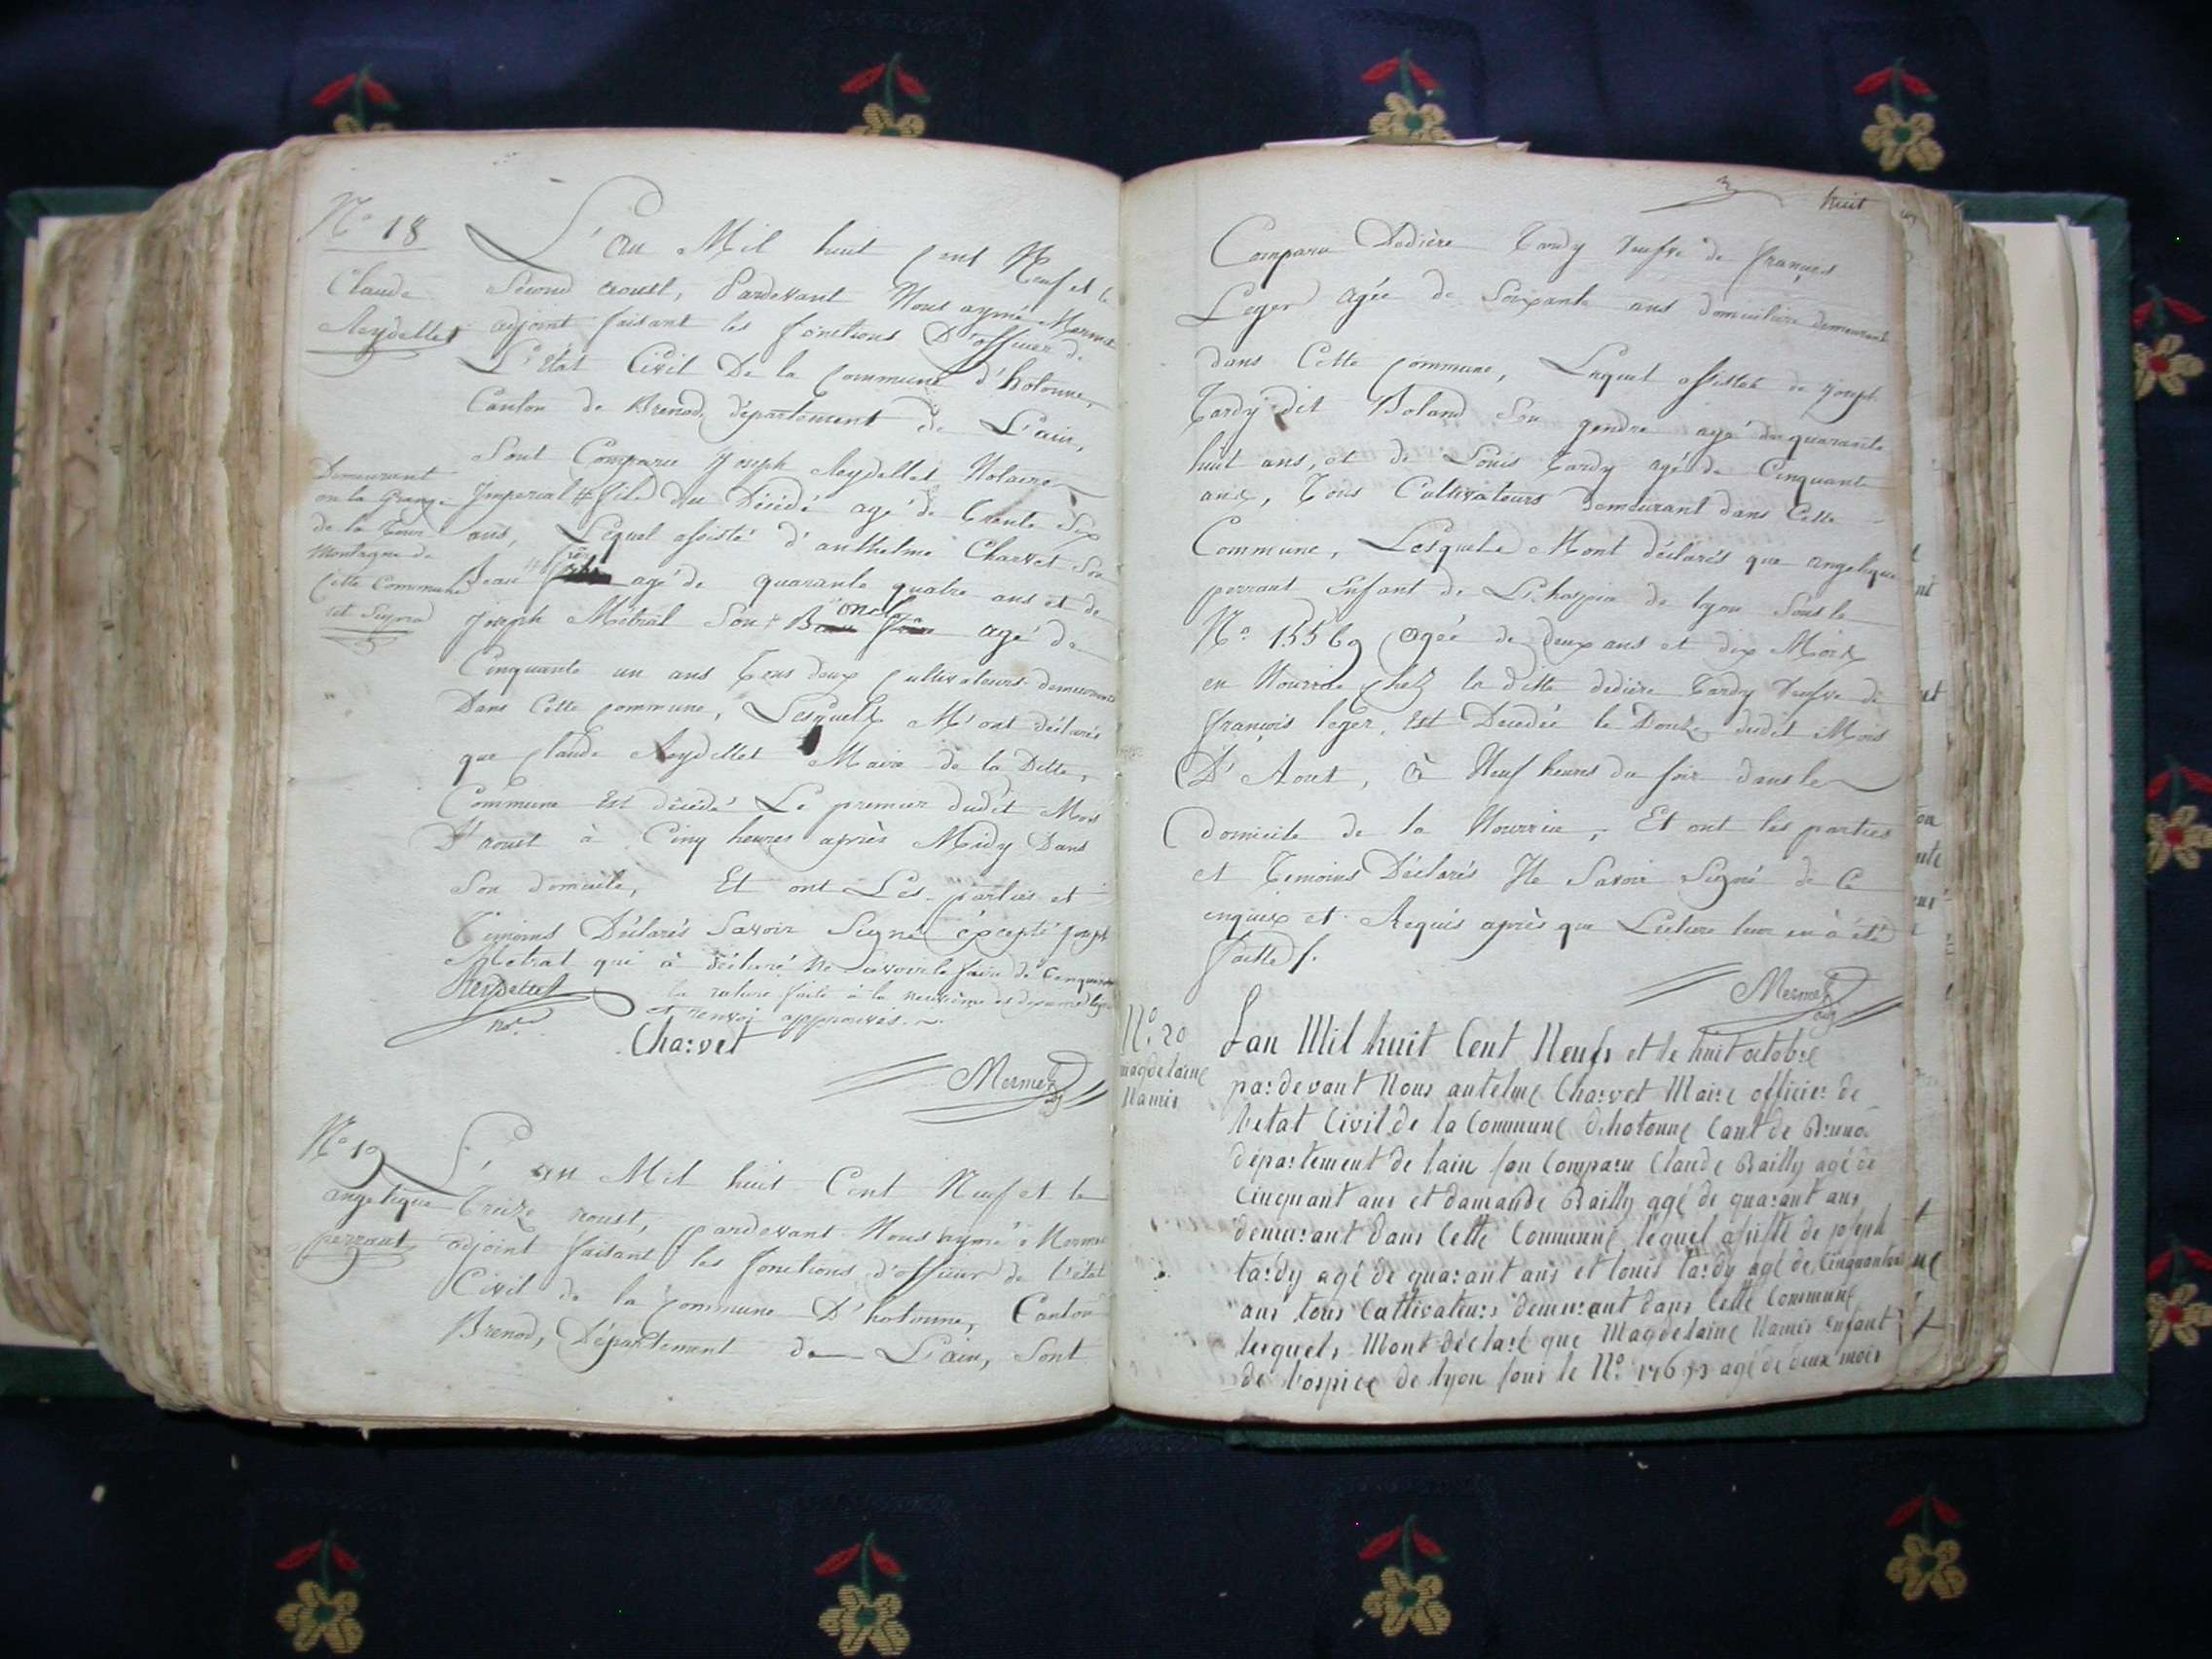 N° 18
Claude
Reydellet
L'an Mil huit Cent Neuf et le
Second aoust, Pardevant Nous aymé Mermet
adjoint faisant les fonctions D'officier de
L'Etat Civil De la Commune d'hotonne,
Canton de Brenod, département de L'ain,
Sont Comparu Joseph Reydellet Notaire
Imperial # fils du Décédé agé de trente Six
Demeurant
en la Grange
de la
Montagne de
Cette Commune
ans, Lequel assisté d'anthelme Charvet Son
Beau frère agé de quarante quatre ans et de
Joseph Métral Son oncle agé de
Cinquante un ans tous deux Cultivateurs demeurant
Dans Cette Commune, Lesquels M'ont déclarés
que Claude Reydellet Maire de la Ditte
Commune Est décédé Le premier dudit Mois
D'aoust à Cinq heures après Midy Dans
Son domicile, Et ont Les parties et
Temoins Déclarés Savoir Signé éxcepté joseph
Métrat qui à déclaré Ne Savoir le faire de Ce enquis
la rature faite à la neuvième et dixième ligne
et renvoi approuvés.
Reydellet
nore
Charvet
Mermet
adj
N° 19
angelique
perrant
L'an Mil huit Cent Neuf et le
treize aoust, pardevant Nous aymé Mermet
adjoint faisant les fonctions d'officier de l'état
Civil de la Commune D'hotonne, Canton
Brenod, Département de L'ain, Sont
huit
Comparu Dedière Tardy Veufve de françois
Leger agée de Soixante ans domiciliée demeurant
dans Cette Commune, Lequel assistée de joseph
Tardy dit Boland Son gendre agé de quarante
huit ans, et de Louis Tardy agé de Cinquante
ans, Tous Cultivateurs Demeurant dans Cette
Commune, Lesquels Mont déclarés que angelique
perrant Enfant de L'hospice de lyon Sous le
N° 15569 agée de deux ans et dix Mois
en Nourrice chez la ditte dedière Tardy Veufve de
françois leger, Est Décédée le Douze dudit Mois
D'Aout, à Neuf heures du soir dans le
domicile de la Nourrice, Et ont les parties
et Temoins Déclarés Ne Savoir Signé de Ce
enquis et Requis après que Lecture leur en à été
faitte /.
Mermet
adj
N°. 20
magdelaine
Namis
Lan Mil huit Cent Neufs et le huit octobre
pardevant Nous antelme Charvet Maire officier de
l'etat Civil de la Commune dhotonne Cant de Bruno
département de lain son Comparu Claude Bailly agé de
Cinquant ans et damande Bailly agé de quarant ans
demurant dans Cette Commune lequel asiste de joseph
tardy agé de quarant ans et louis tardy agé de Cinquant
ans tous Cattivateurs demurant dans Cette Commune
lesquels Mont déclaré que Magdelaine Namis Enfant
de l'ospice de lyon sous le N°. agé de deux mois